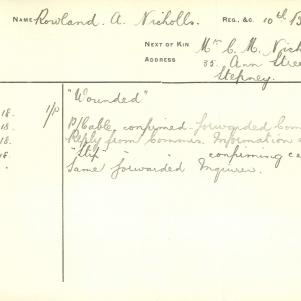 NAME Rowland. A. Nicholls. REG. &C. 10th B
NEXT OF KIN Mr C. M. Nich
ADDRESS 35. Ann Stree
Stepney.
"Wounded"
18. 1/P P/Cable confirmed - forwarded Com
18. Reply from Commis. Information
18. "Slip" " " confirming ca
Same forwarded Inquirer.